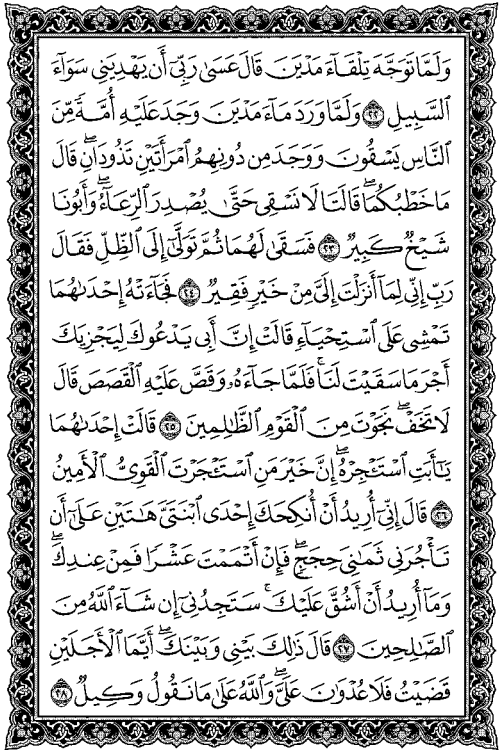 وَلَمَّا تَوَجَّهَ تِلْقَآءَ مَدْيَنَ قَالَ عَسَىٰ رَبِّىٓ أَن يَهْدِيَنِى سَوَآءَ
ٱلسَّبِيلِ ٢٢ وَلَمَّا وَرَدَ مَآءَ مَدْيَنَ وَجَدَ عَلَيْهِ أُمَّةً مِّنَ
ٱلنَّاسِ يَسْقُونَ وَوَجَدَ مِن دُونِهِمُ ٱمْرَأَتَيْنِ تَذُودَانِ ۖ قَالَ
مَا خَطْبُكُمَا ۖ قَالَتَا لَا نَسْقِى حَتَّىٰ يُصْدِرَ ٱلرِّعَآءُ ۖ وَأَبُونَا
شَيْخٌ كَبِيرٌ ٢٣ فَسَقَىٰ لَهُمَا ثُمَّ تَوَلَّىٰٓ إِلَى ٱلظِّلِّ فَقَالَ
رَبِّ إِنِّى لِمَآ أَنزَلْتَ إِلَىَّ مِنْ خَيْرٍ فَقِيرٌ ٢٤ فَجَآءَتْهُ إِحْدَىٰهُمَا
تَمْشِى عَلَى ٱسْتِحْيَآءٍ قَالَتْ إِنَّ أَبِى يَدْعُوكَ لِيَجْزِيَكَ
أَجْرَ مَا سَقَيْتَ لَنَا ۚ فَلَمَّا جَآءَهُۥ وَقَصَّ عَلَيْهِ ٱلْقَصَصَ قَالَ
لَا تَخَفْ ۖ نَجَوْتَ مِنَ ٱلْقَوْمِ ٱلظَّـٰلِمِينَ ٢٥ قَالَتْ إِحْدَىٰهُمَا
يَـٰٓأَبَتِ ٱسْتَـْٔجِرْهُ ۖ إِنَّ خَيْرَ مَنِ ٱسْتَـْٔجَرْتَ ٱلْقَوِىُّ ٱلْأَمِينُ
٢٦ قَالَ إِنِّىٓ أُرِيدُ أَنْ أُنكِحَكَ إِحْدَى ٱبْنَتَىَّ هَـٰتَيْنِ عَلَىٰٓ أَن
تَأْجُرَنِى ثَمَـٰنِىَ حِجَجٍ ۖ فَإِنْ أَتْمَمْتَ عَشْرًا فَمِنْ عِندِكَ ۖ
وَمَآ أُرِيدُ أَنْ أَشُقَّ عَلَيْكَ ۚ سَتَجِدُنِىٓ إِن شَآءَ ٱللَّهُ مِنَ
ٱلصَّـٰلِحِينَ ٢٧ قَالَ ذَٰلِكَ بَيْنِى وَبَيْنَكَ ۖ أَيَّمَا ٱلْأَجَلَيْنِ
قَضَيْتُ فَلَا عُدْوَٰنَ عَلَىَّ ۖ وَٱللَّهُ عَلَىٰ مَا نَقُولُ وَكِيلٌ ٢٨